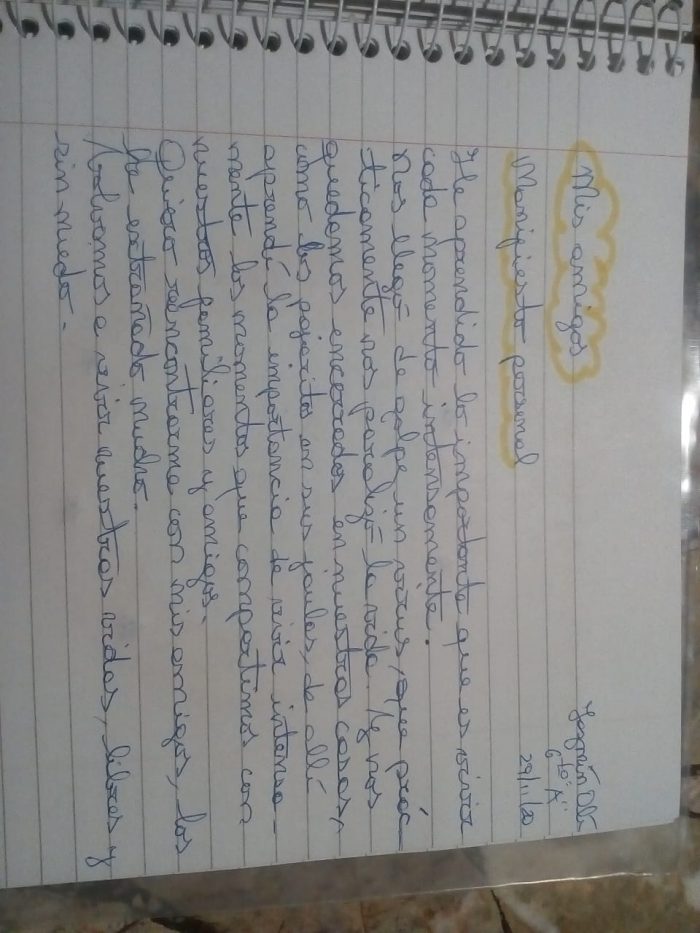 Mis amigos
6to "A"
Manifiesto personal
29/11/20
He aprendido lo importante que es vivir
cada momento intensamente.
Nos llegó de golpe un virus, que prác-
ticamente nos paralizó la vida. Y nos
quedamos encerrados en nuestras casas,
como los pajaritos en sus jaulas, de allí
aprendí la importancia de vivir intensa-
mente los momentos que compartimos con
nuestros familiares y amigos.
Quiero reencontrarme con mis amigos, los
he extrañado mucho.
Volvamos a vivir nuestras vidas, libres y
sin miedo.